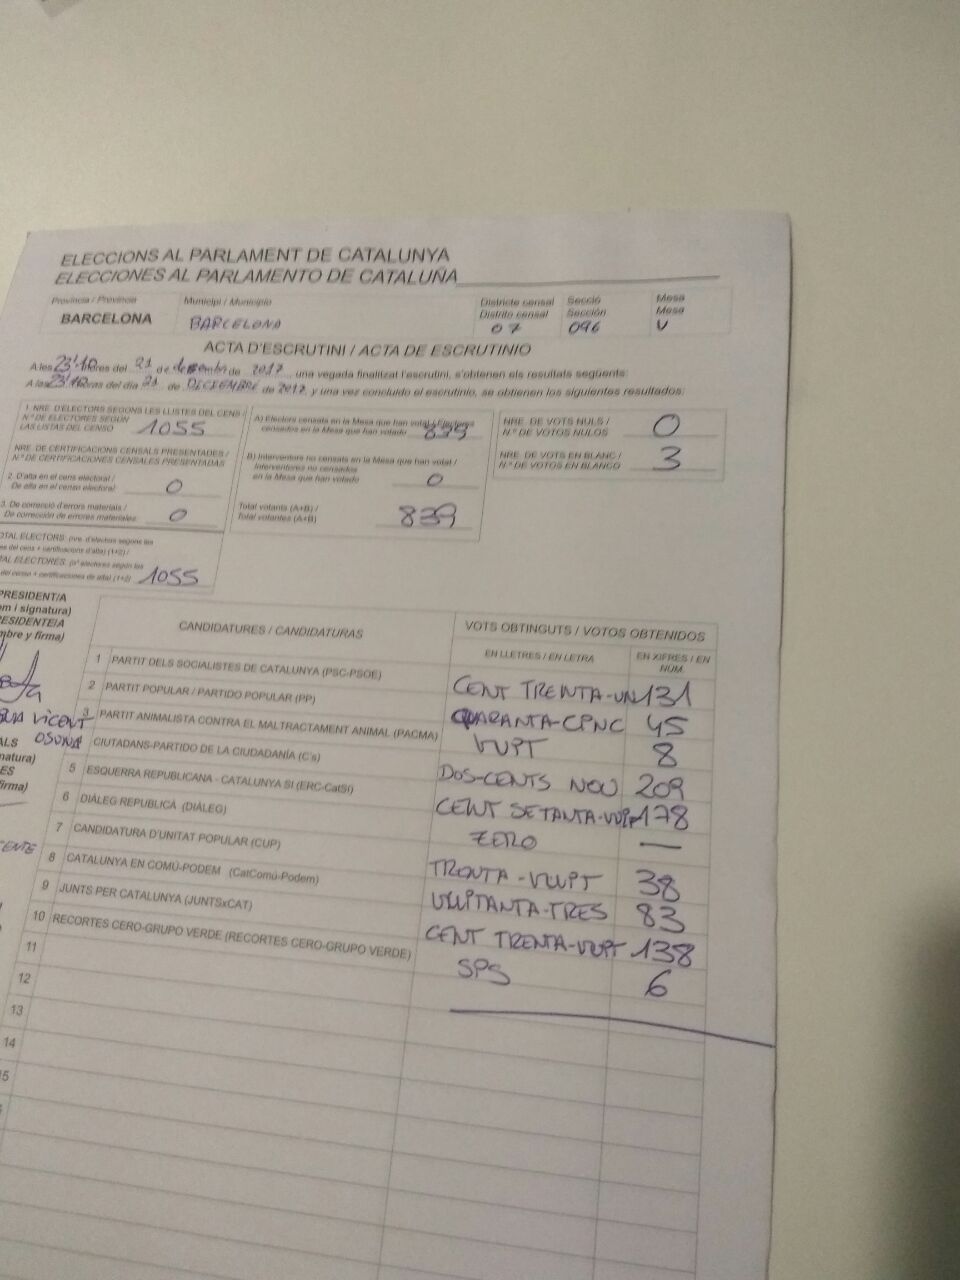 ELECCIONS AL PARLAMENT DE CATALUNYA
ELECCIONES AL PARLAMENTO DE CATALUÑA
Província / Provincia
BARCELONA
Municipi / Municipio
BARCELONA
Districte censal
Distrito censal
07
Secció
Sección
096
Mesa
Mesa
U
ACTA D'ESCRUTINI / ACTA DE ESCRUTINIO
A les 23'10 hores del 21 de desembre de 2017 una vegada finalitzat l'escrutini, s'obtenen els resultats següents:
A las 23'10 horas del día 21 de DECIEMBRE de 2017, y una vez concluido el escrutinio, se obtienen los siguientes resultados:
1. NRE. D'ELECTORS SEGONS LES LLISTES DEL CENS /
N.º DE ELECTORES SEGÚN
LAS LISTAS DEL CENSO
1055
NRE. DE CERTIFICACIONS CENSALS PRESENTADES /
N.º DE CERTIFICACIONES CENSALES PRESENTADAS
2. D'alta en el cens electoral /
De alta en el censo electoral
0
3. De correcció d'errors materials /
De corrección de errores materiales
0
TOTAL ELECTORS: (nre. d'electors segons les
del cens + certificacions d'alta) (1+2) /
ELECTORES: (nº electores según las
del censo + certificaciones de alta) (1+2)
1055
A) Electors censats en la Mesa que han votat / Electores
censados en la Mesa que han votado
839
B) Interventors no censats en la Mesa que han votat /
Interventores no censados
en la Mesa que han votado
0
Total votants (A+B) /
Total votantes (A+B)
839
NRE. DE VOTS NULS /
N.º DE VOTOS NULOS
0
NRE. DE VOTS EN BLANC /
N.º DE VOTOS EN BLANCO
3
PRESIDENT/A
i signatura)
y firma)
VICENT
OSUNA
CANDIDATURES / CANDIDATURAS
VOTS OBTINGUTS / VOTOS OBTENIDOS
EN LLETRES / EN LETRA
EN XIFRES / EN NÚM.
1 PARTIT DELS SOCIALISTES DE CATALUNYA (PSC-PSOE) CENT TRENTA-UN 131
2 PARTIT POPULAR / PARTIDO POPULAR (PP) QUARANTA-CINC 45
3 PARTIT ANIMALISTA CONTRA EL MALTRACTAMENT ANIMAL (PACMA) VUIT 8
CIUTADANS-PARTIDO DE LA CIUDADANÍA (C's) DOS-CENTS NOU 209
5 ESQUERRA REPUBLICANA - CATALUNYA SÍ (ERC-CatSí) CENT SETANTA-VUIT 178
6 DIÀLEG REPUBLICÀ (DIÀLEG) ZERO —
7 CANDIDATURA D'UNITAT POPULAR (CUP) TRENTA-VUIT 38
8 CATALUNYA EN COMÚ-PODEM (CatComú-Podem) VUITANTA-TRES 83
9 JUNTS PER CATALUNYA (JUNTSxCAT) CENT TRENTA-VUIT 138
10 RECORTES CERO-GRUPO VERDE (RECORTES CERO-GRUPO VERDE) SIS 6
11
12
13
14